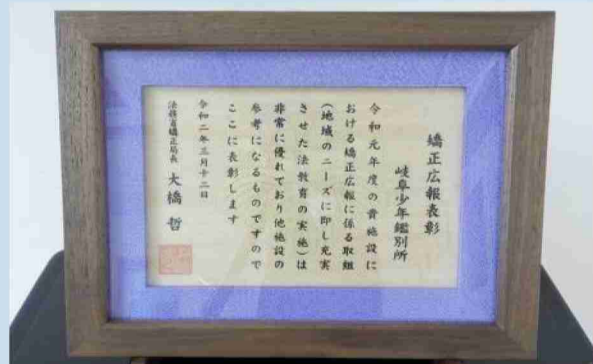 矯正広報表彰
岐阜少年鑑別所
令和元年度の貴施設に
おける矯正広報に係る取組
(地域のニーズに即し充実
させた法教育の実施)は
非常に優れており他施設の
参考になるものですので
ここに表彰します
令和二年三月十二日
法務省矯正局長 大橋 哲